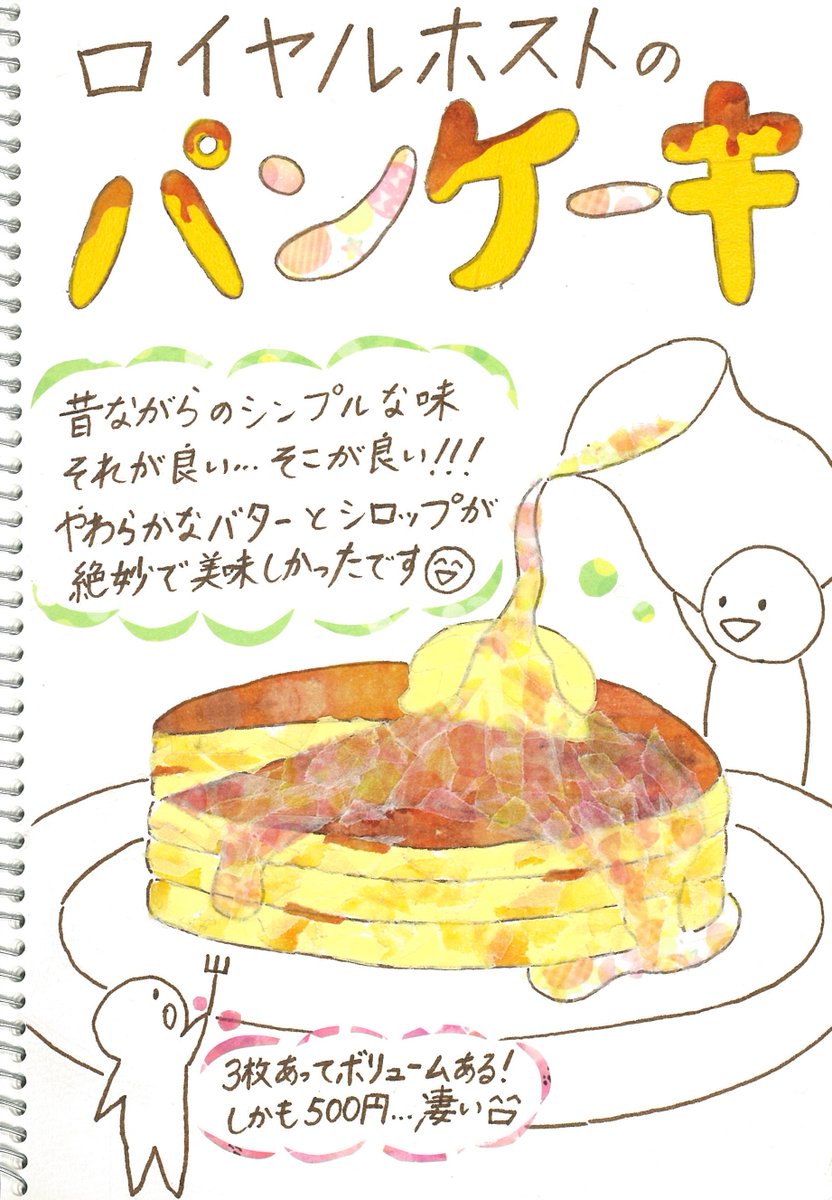 ロイヤルホストの
パンケーキ
昔ながらのシンプルな味
それが良い…そこが良い!!!
やわらかなバターとシロップが
絶妙で美味しかったです
3枚あってボリュームある!
しかも500円…凄い